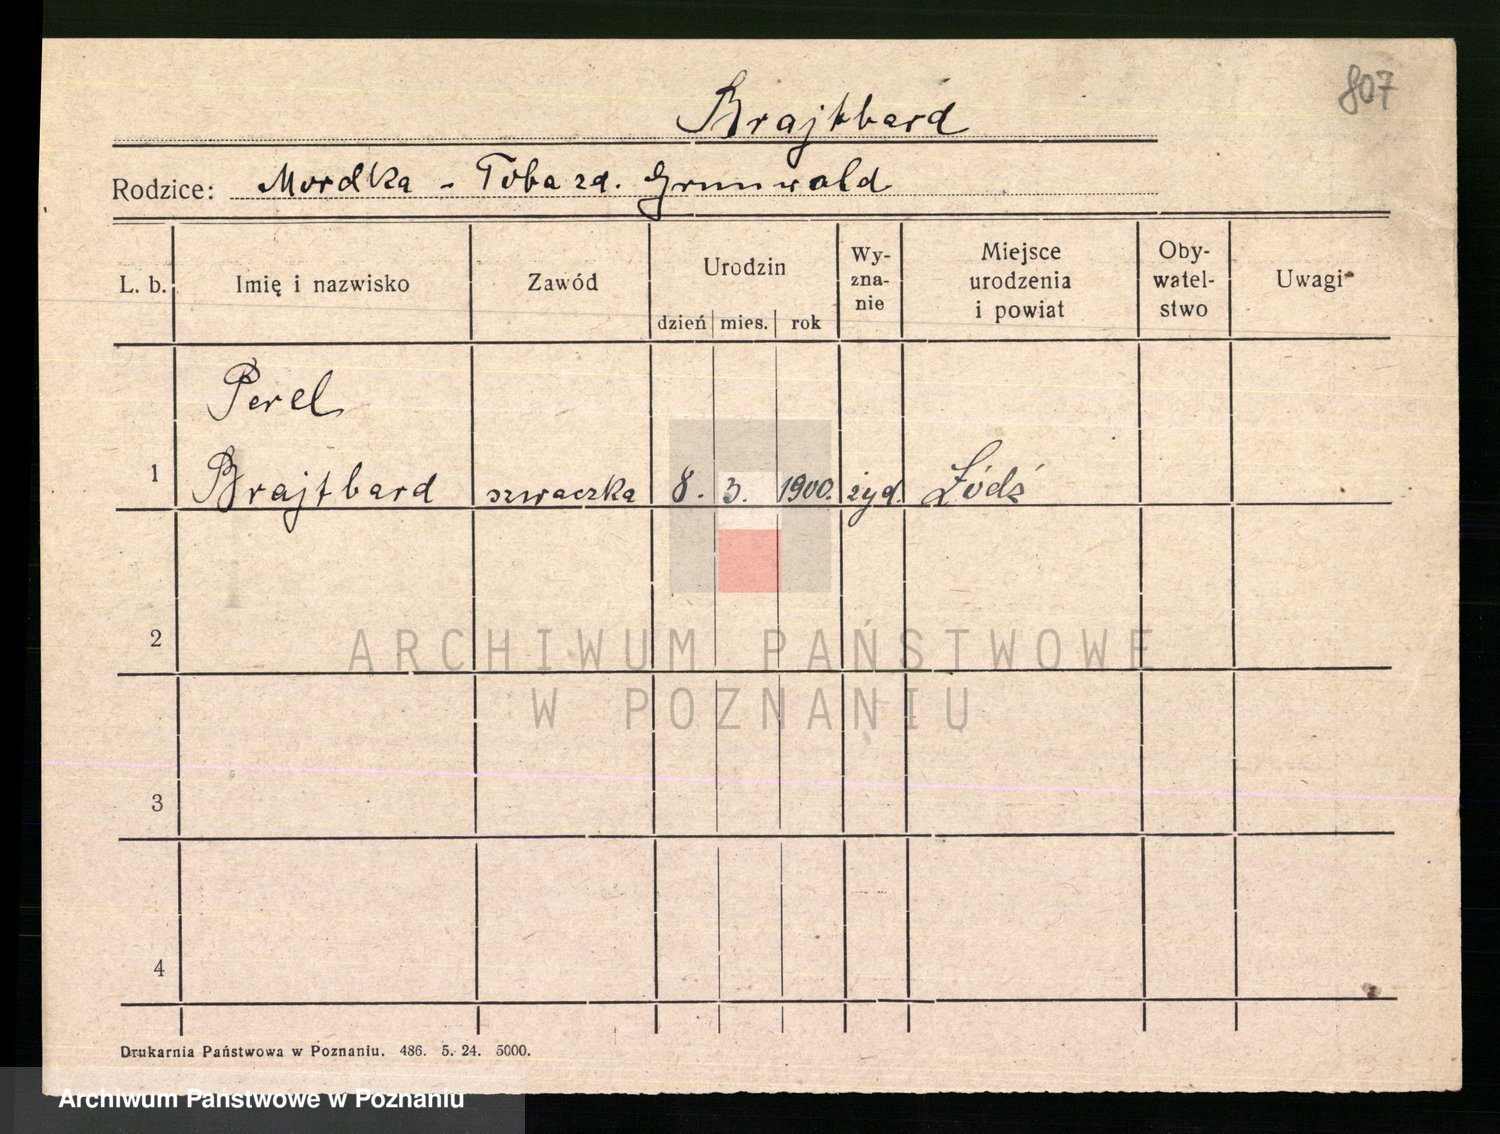 807
Brajtbard
Rodzice: Mordka - Toba zd. Grunwald
L. b. Imię i nazwisko Zawód Urodzin dzień mies. rok Wy-zna-nie Miejsce urodzenia i powiat Oby-watel-stwo Uwagi
Perel
1 Brajtbard szwaczka 8. 3. 1900. żyd. Łódź
2
ARCHIWUM PAŃSTWOWE
W POZNANIU
3
4
Drukarnia Państwowa w Poznaniu. 486. 5. 24. 5000.
Archiwum Państwowe w Poznaniu